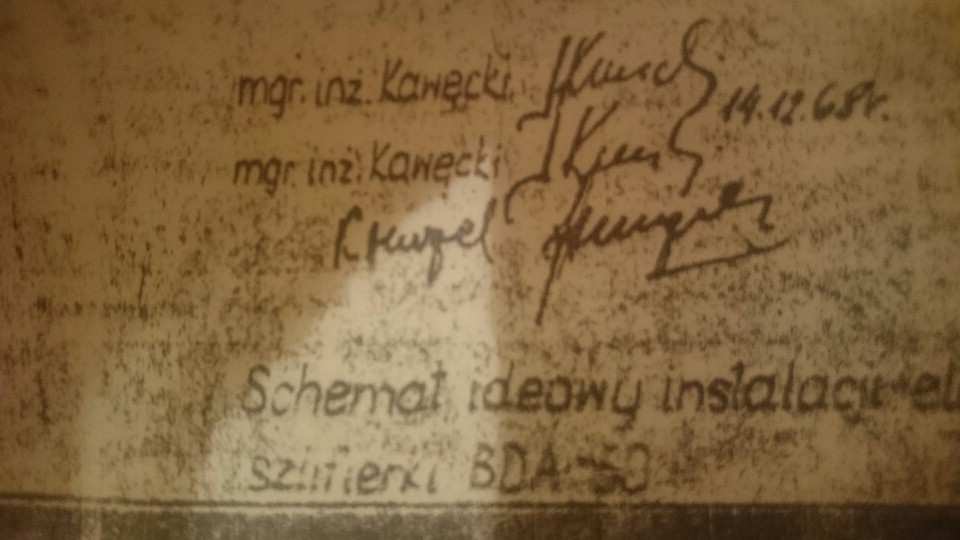 mgr. inż. Kawęcki 14.12.68r.
mgr. inż. Kawęcki
Schemat ideowy instalacji el
szlifierki BDA